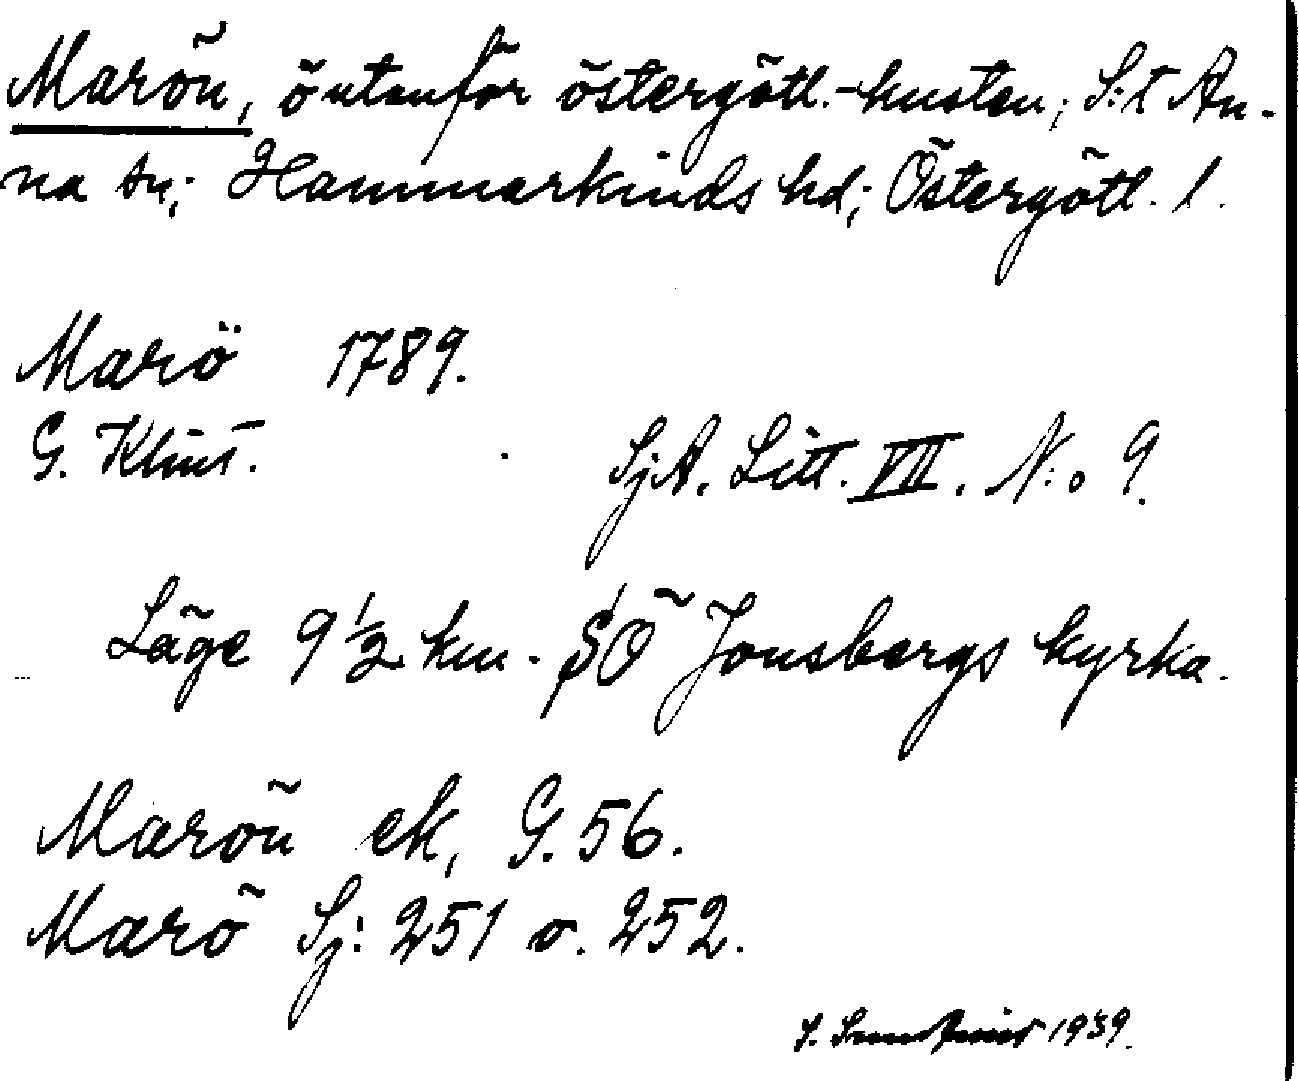 Marön, ö utanför östergötl.-kusten; S:t An-
na sn; Hammarkinds hd; Östergötl. l.
Marö 1789.
G. Klint. SjA. Litt. VII. N:o 9.
Läge 9 1/2 km. SÖ Jonsbergs kyrka.
Marön ek, G. 56.
Marö Sj: 251 o. 252.
1939.